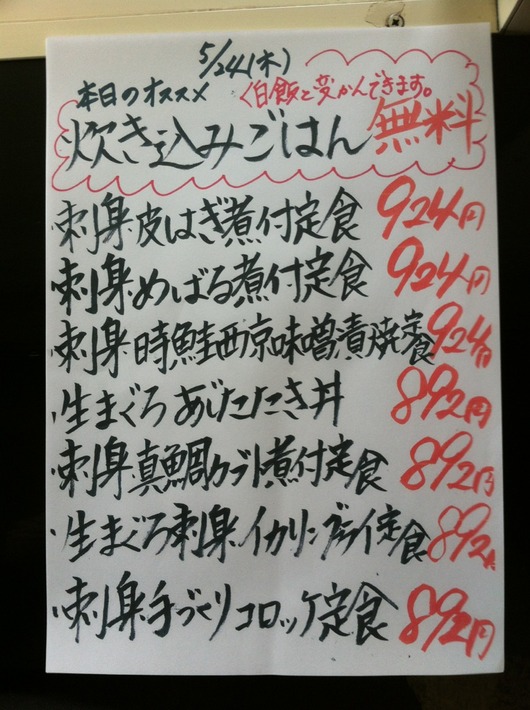 5/24(木)
本日のオススメ
白飯と変かんできます。
炊き込みごはん 無料
刺身 皮はぎ煮付定食 924円
刺身 めばる煮付定食 924円
刺身 時鮭西京味噌漬焼定食 924円
生まぐろ あじたたき丼 892円
刺身 真鯛カブト煮付定食 892円
生まぐろ刺身 イカリングフライ定食 892円
刺身 手づくりコロッケ定食 892円